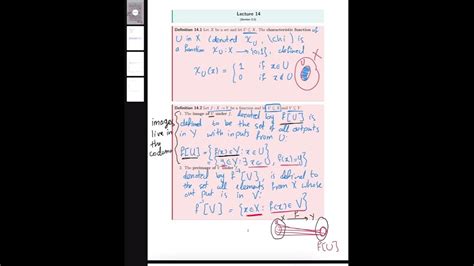 Lecture 14
Definition 14.1 Let X be a set and let U ⊆ X. The characteristic function of
U in X (denoted χ_U, \chi) is
a function χ_U : X → {0,1}, defined
χ_U(x) = { 1 if x ∈ U
0 if x ∉ U
X
U
Definition 14.2 Let f : X → Y be a function and let U ⊆ X and V ⊆ Y
1. The image of U under f, denoted by f[U] is
defined to be the set of all outputs
in Y with inputs from U:
f[U] = {f(x) ∈ Y : x ∈ U}
= {y ∈ Y : ∃ x ∈ U, f(x) = y}
images
live in
the
codomain
2. The preimage of V under f,
denoted by f⁻¹[V], is defined to
the set all elements from X whose
output is in V:
f⁻¹[V] = {x ∈ X : f(x) ∈ V}
X f Y
f[U]